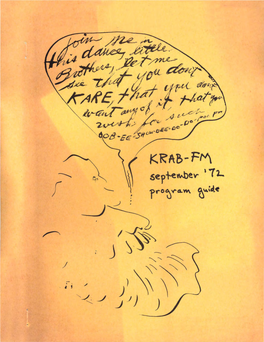 Join me in
this dance, little
Brothers, let me
see that you don't
KARE, that you don't
want any of it that you
wish for such
OOB-EE-SHOW-DEE-OO-
KRAB-FM
september '72
program guide